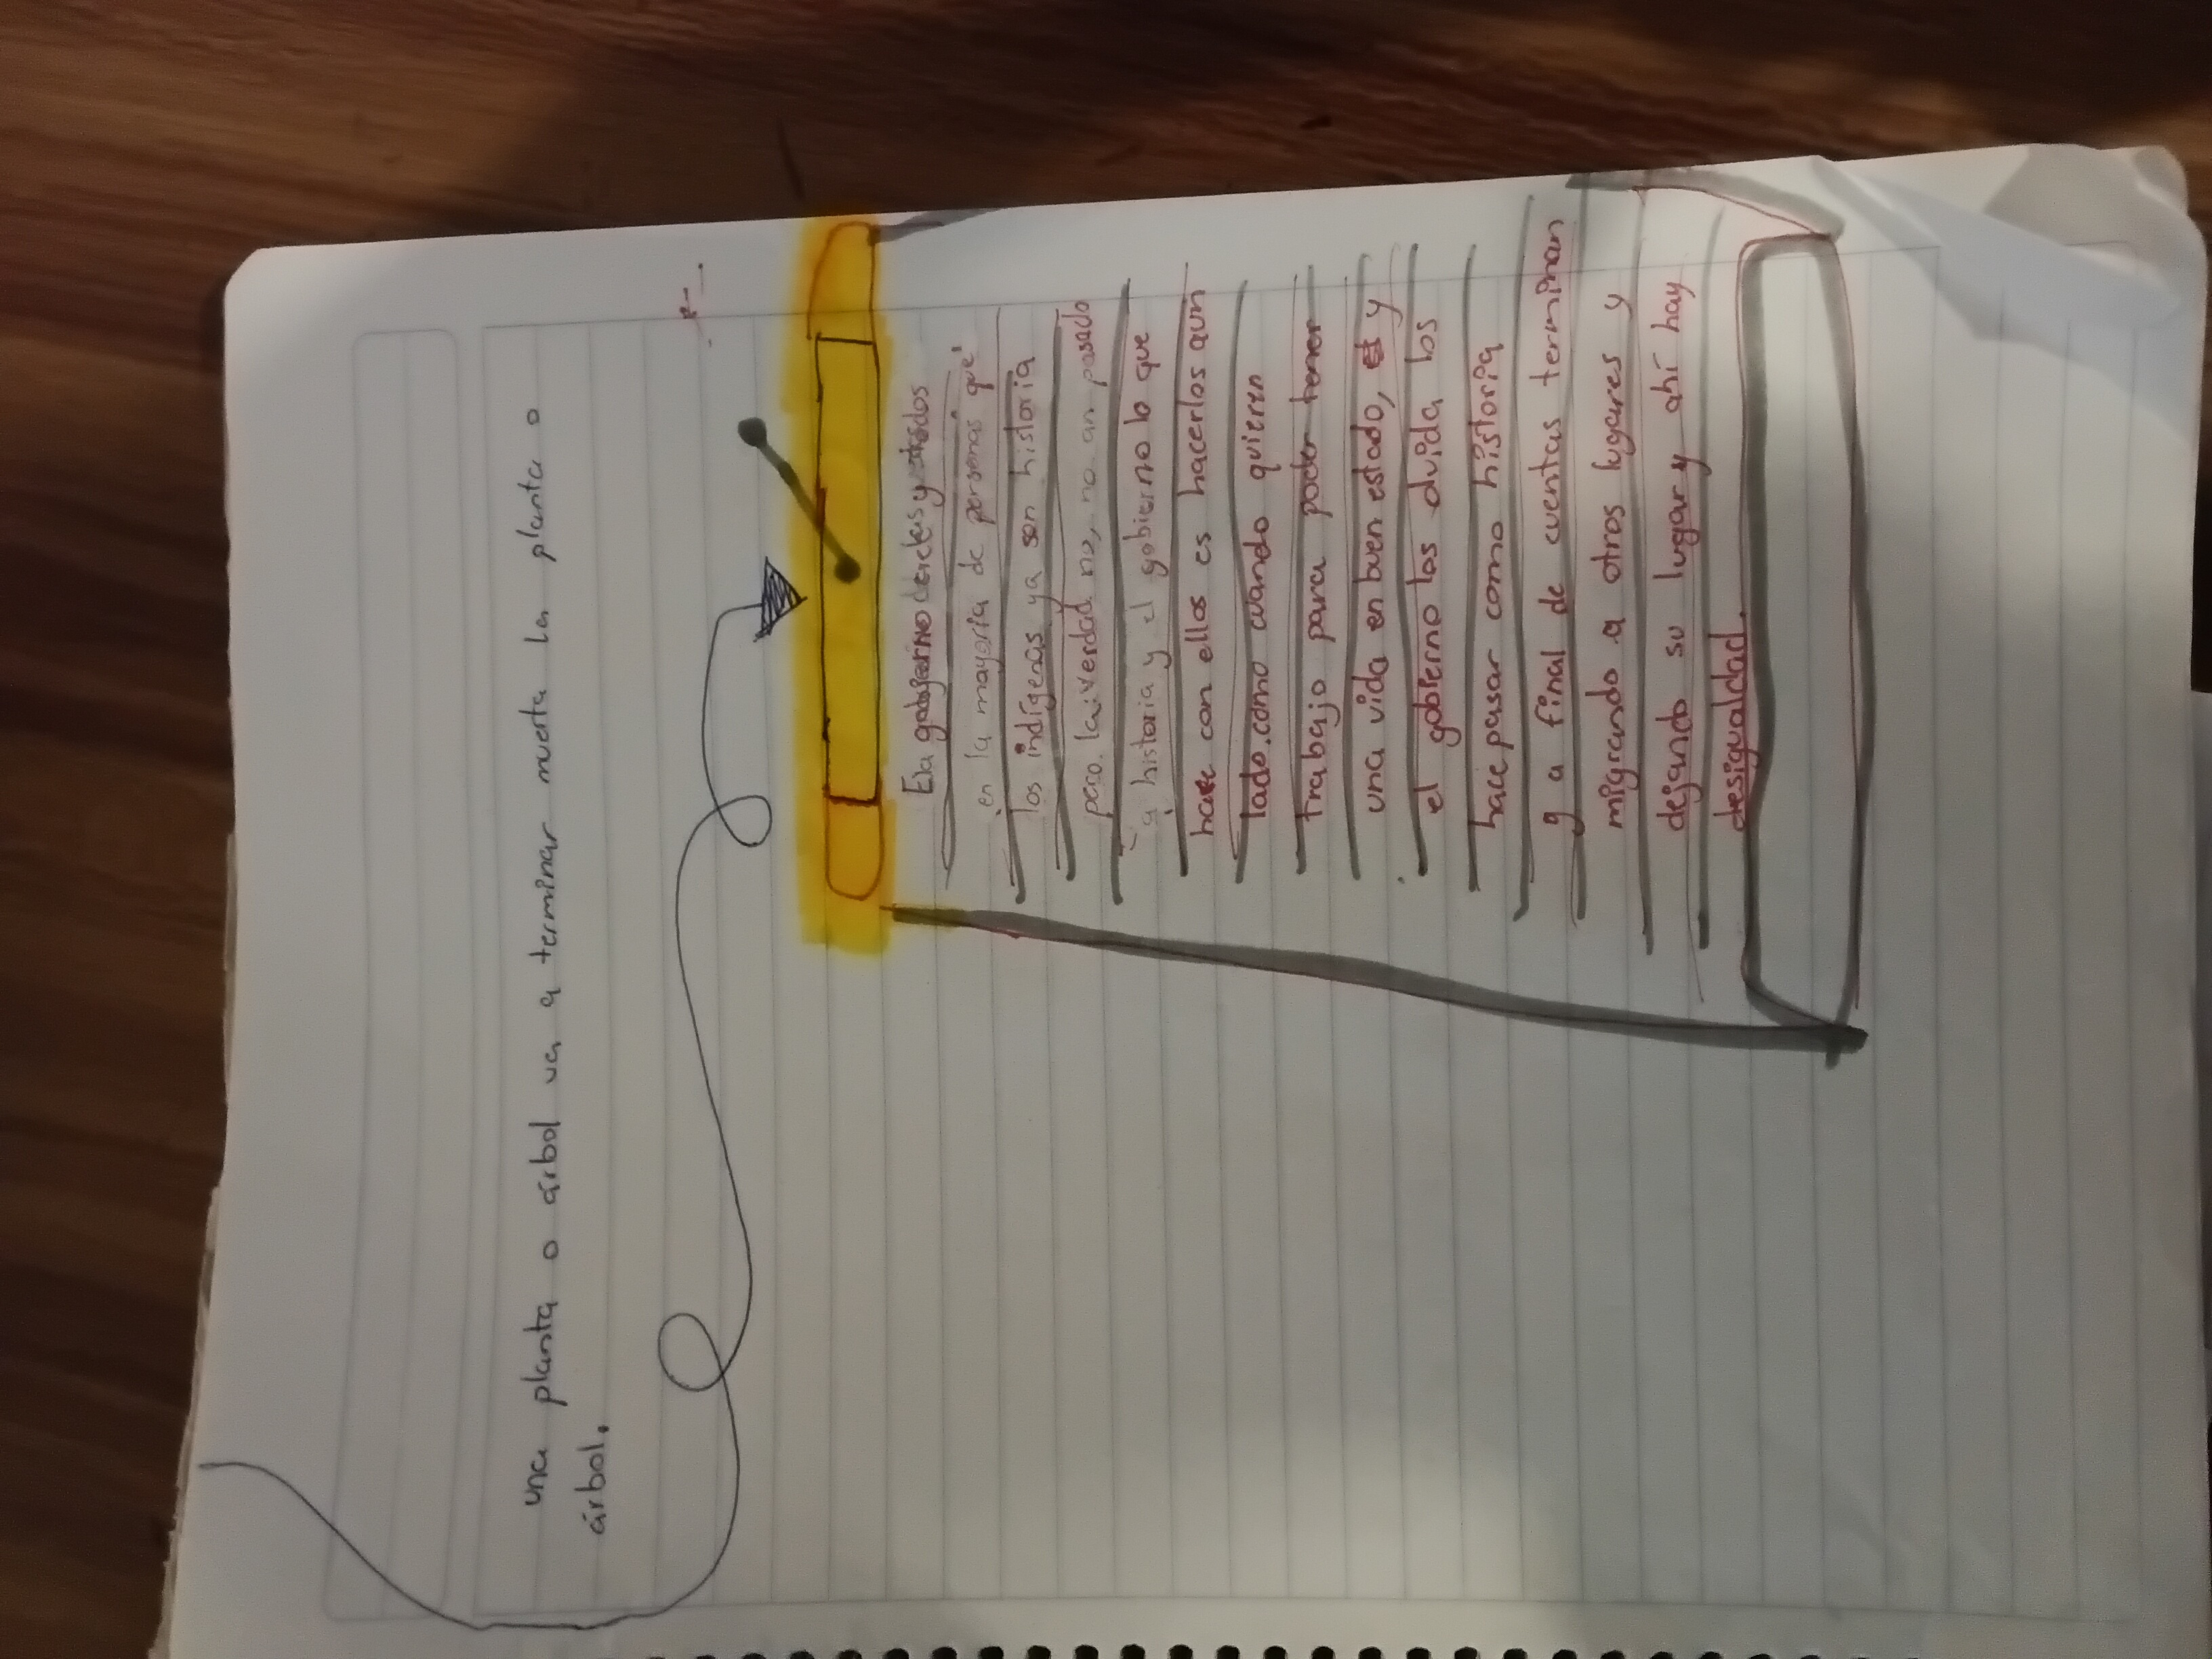 una planta o árbol va a terminar muerta la planta o
árbol.
en la mayoría de personas que
los indígenas ya son historia
pero la verdad no, no an pasado
a historia y el gobierno lo que
hace con ellos es hacerlos aun
lado.como cuando quieren
trabajo para poder tener
una vida en buen estado, y
el gobierno los olvida los
hace pasar como historia
y a final de cuentas terminan
migrando a otros lugares y
dejando su lugar y ahí hay
desigualdad.